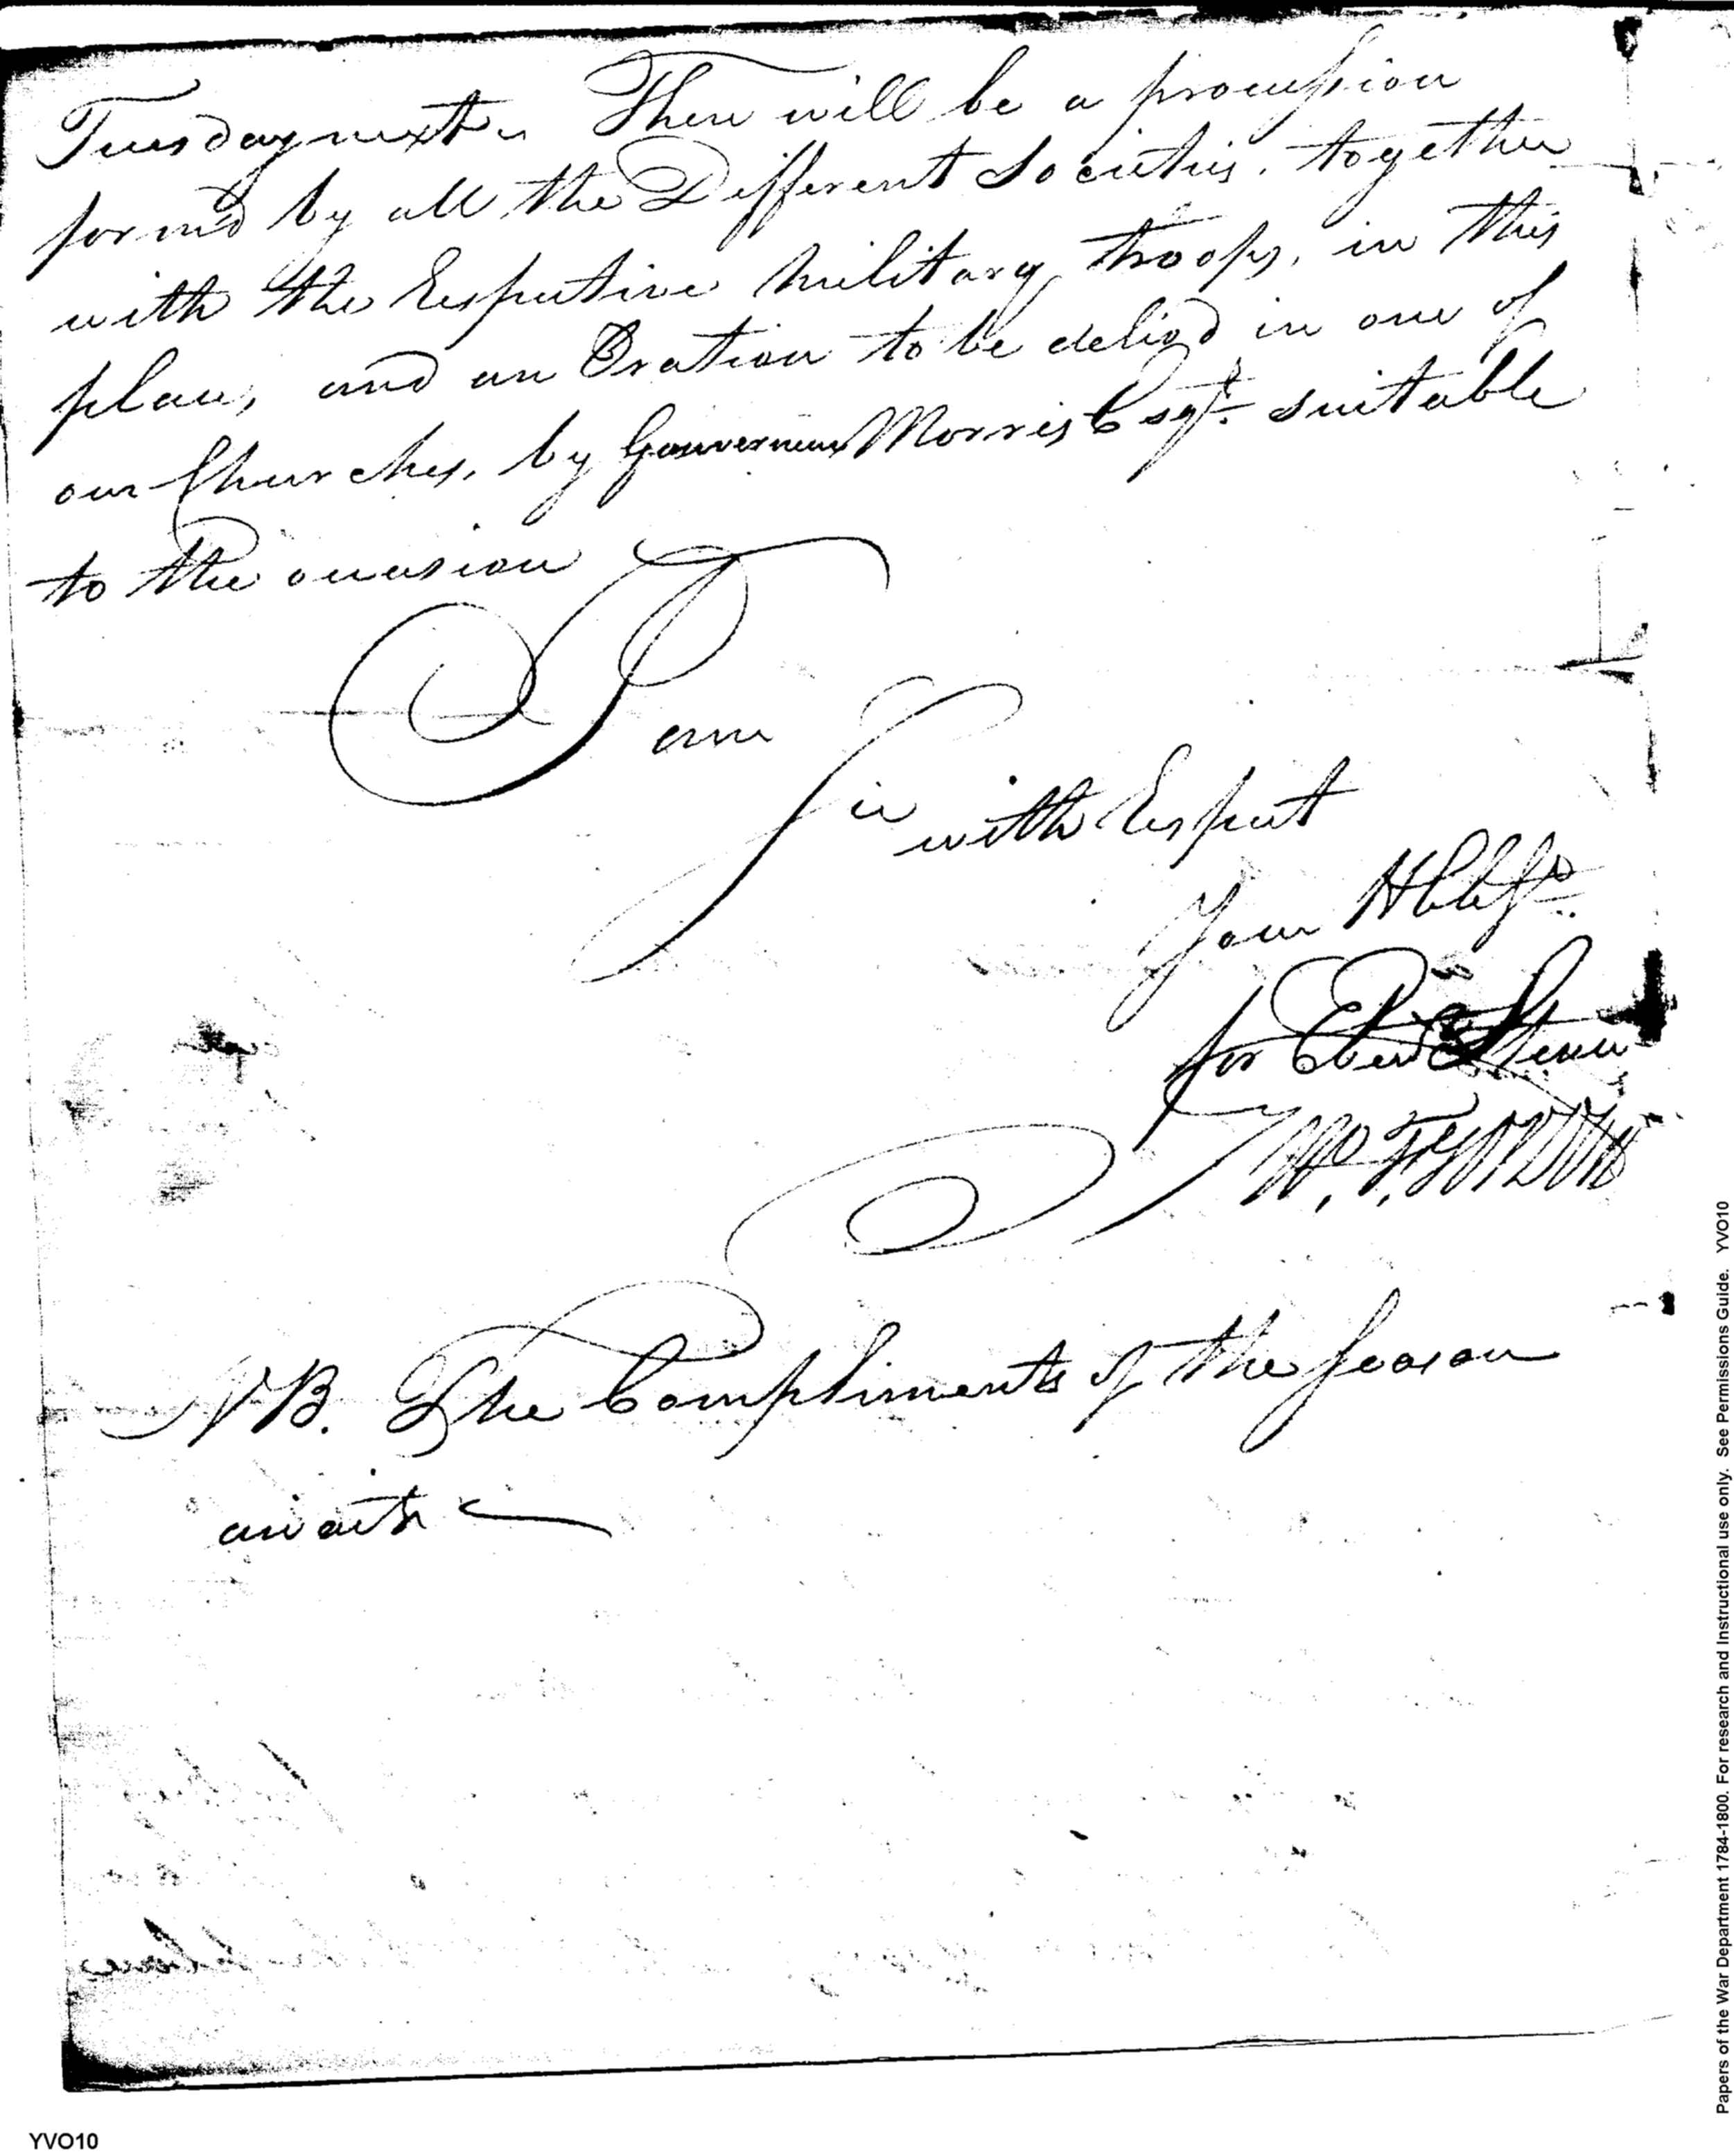 Tuesday next. There will be a procession
form'd by all the Different Societies, together
with the Respective military troops, in this
place, and an Oration to be deliv'd in one of
our Churches, by Gouverneur Morris Esqr. suitable
to the occasion
I am
Sir
with Respect
Your Hble St
for Eben Stevens
W. F.
NB. The Compliments of the Season
await
Papers of the War Department 1784-1800. For research and Instructional use only. See Permissions Guide. YVO10
YVO10